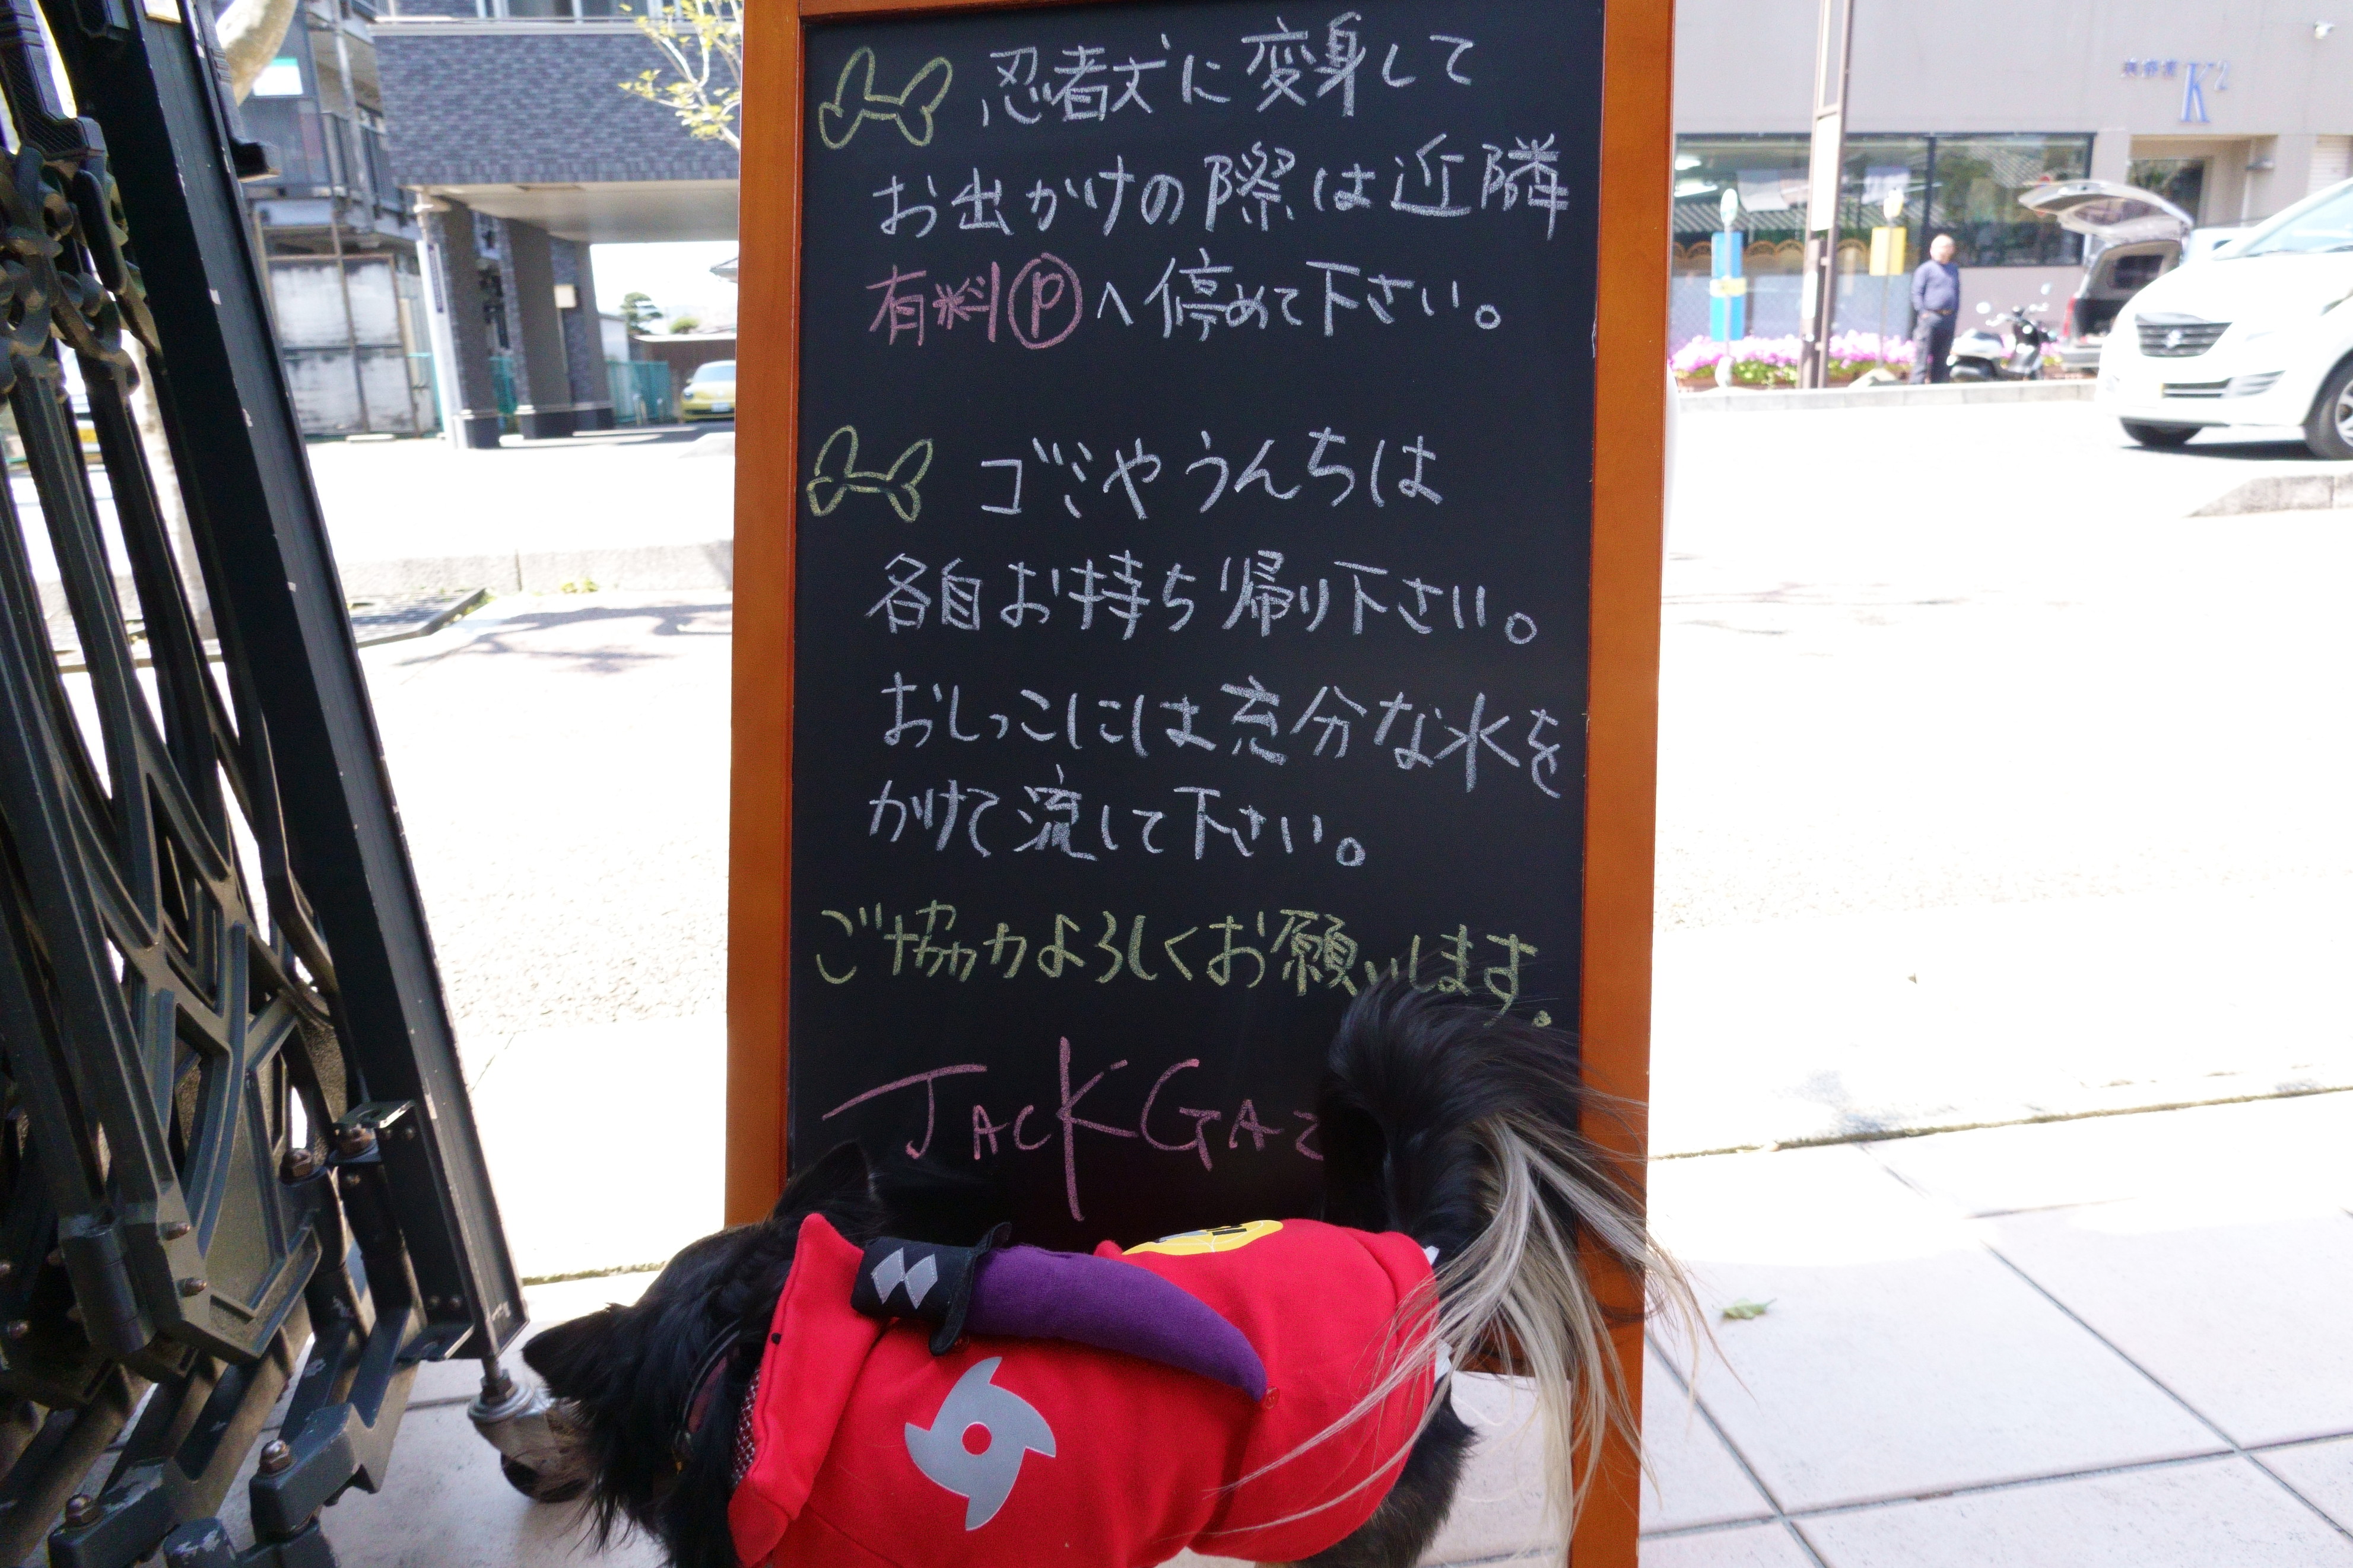 忍者犬に変身して
お出かけの際は近隣
有料Ⓟへ停めて下さい。
ゴミやうんちは
各自お持ち帰り下さい。
おしっこには充分な水を
かけて流して下さい。
ご協力よろしくお願いします。
JACK GAZ
K2